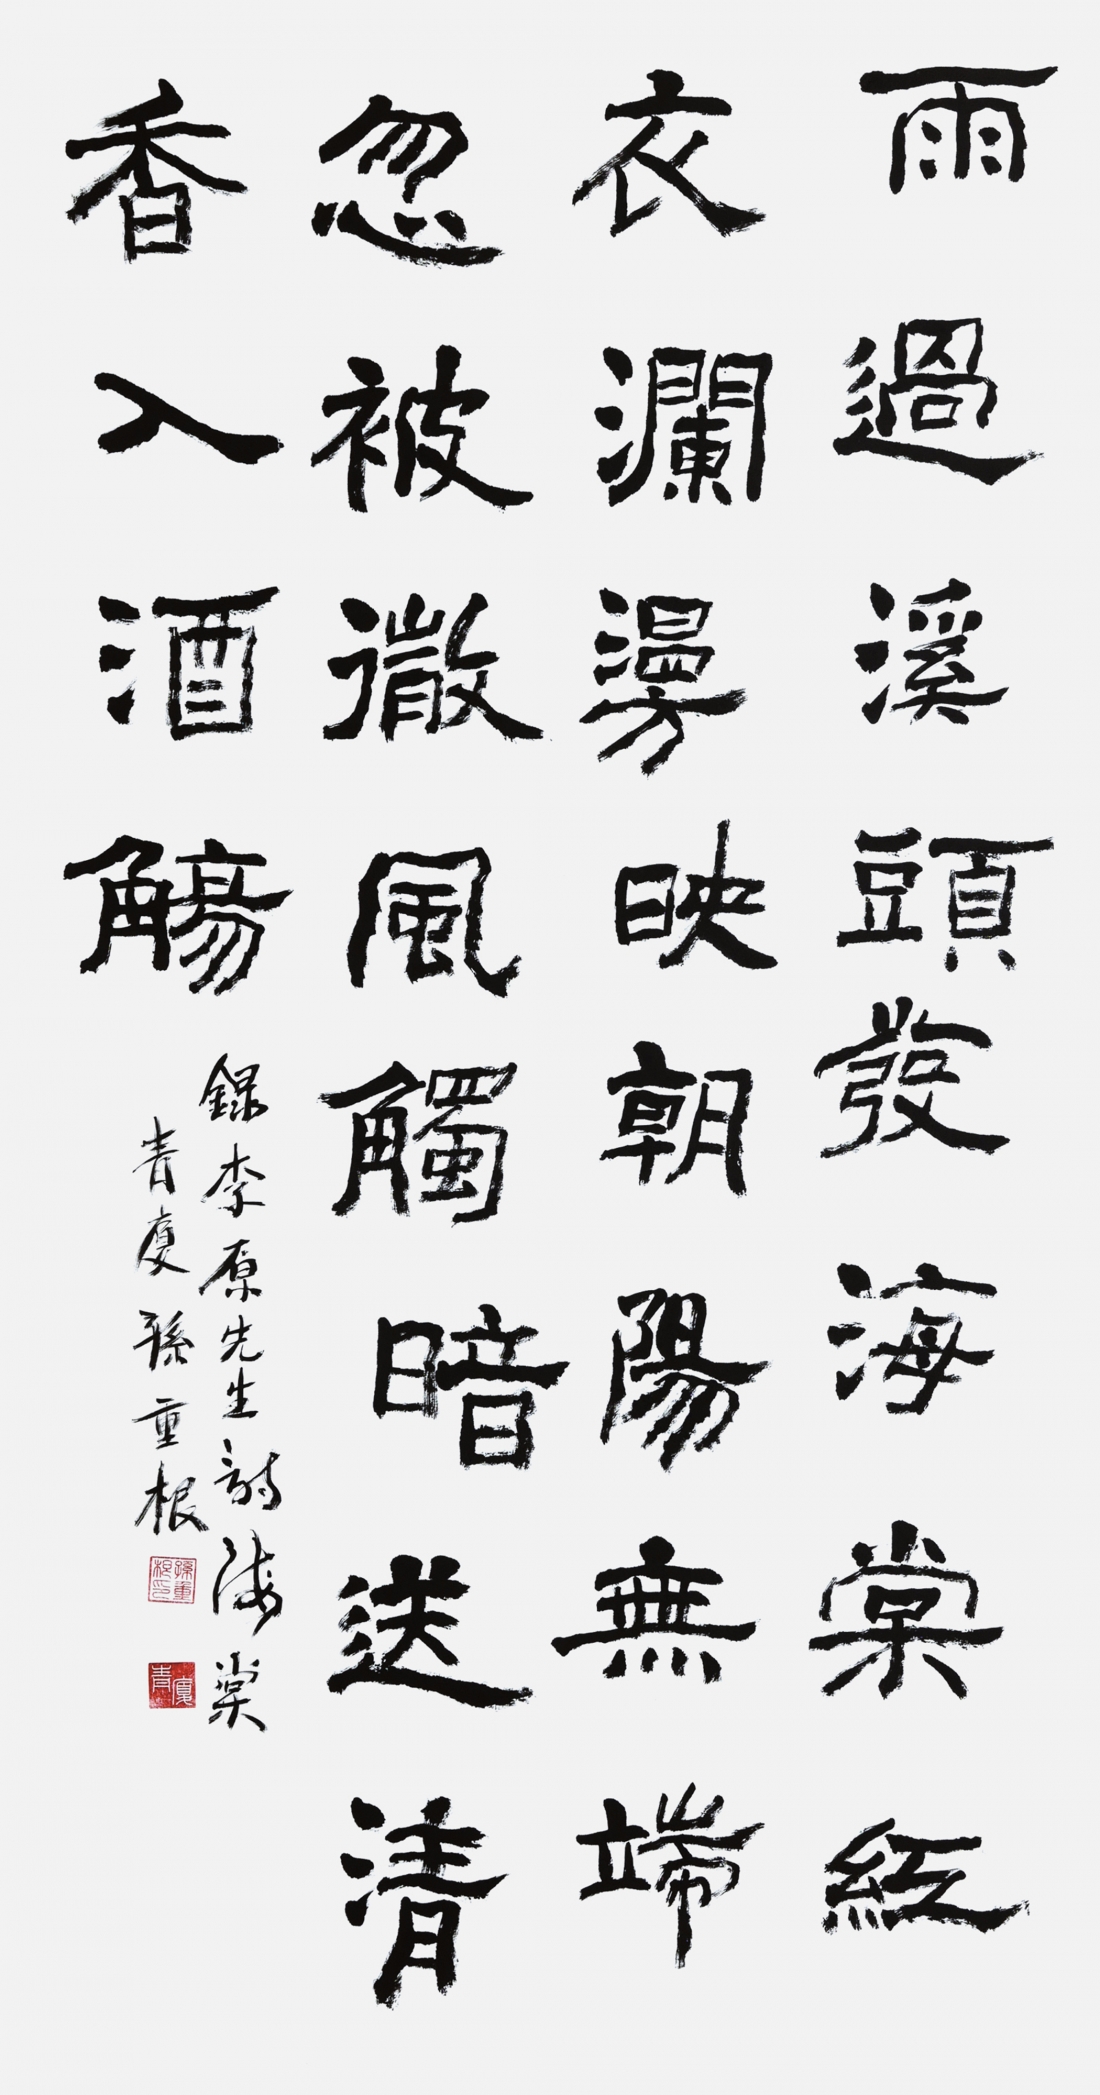 雨過溪頭發海棠紅
衣瀾漫映朝陽無端
忽被微風觸暗送清
香入酒觴
録李原先生詩海棠
青廈孫重根
孫重根印
青廈